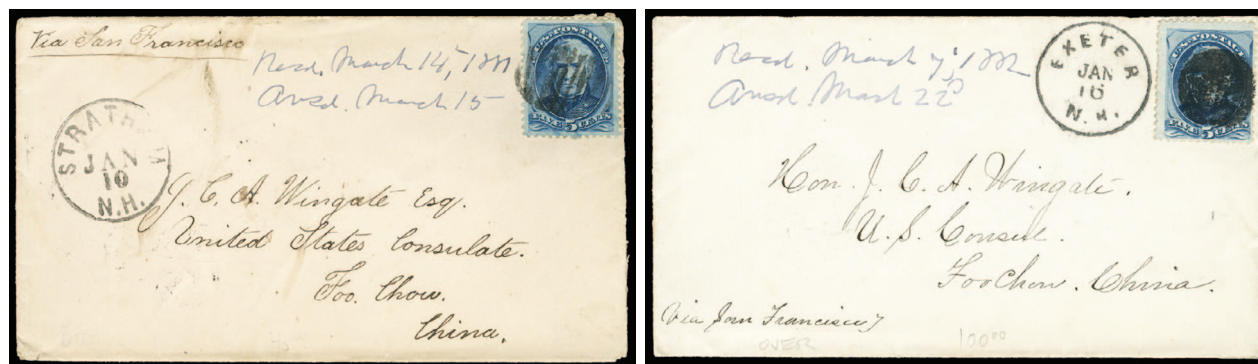 Via San Francisco
Recd. March 14, 1881
Ansd. March 15
U.S. POSTAGE
FIVE 5 CENTS
STRATHAM
JAN
10
N.H.
J. C. A. Wingate Esq.
United States Consulate.
Foo. Chow.
China.
Recd. March 7, 1882
Ansd. March 22
EXETER
JAN
16
N.H.
U.S. POSTAGE
FIVE 5 CENTS
Hon. J. C. A. Wingate.
U. S. Consul.
FooChow. China.
Via San Francisco
OVER
100⁰⁰